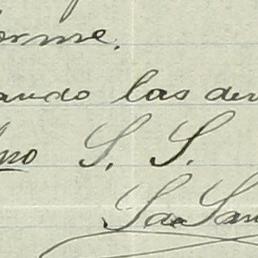 orme.
ando las der
mo S. S.